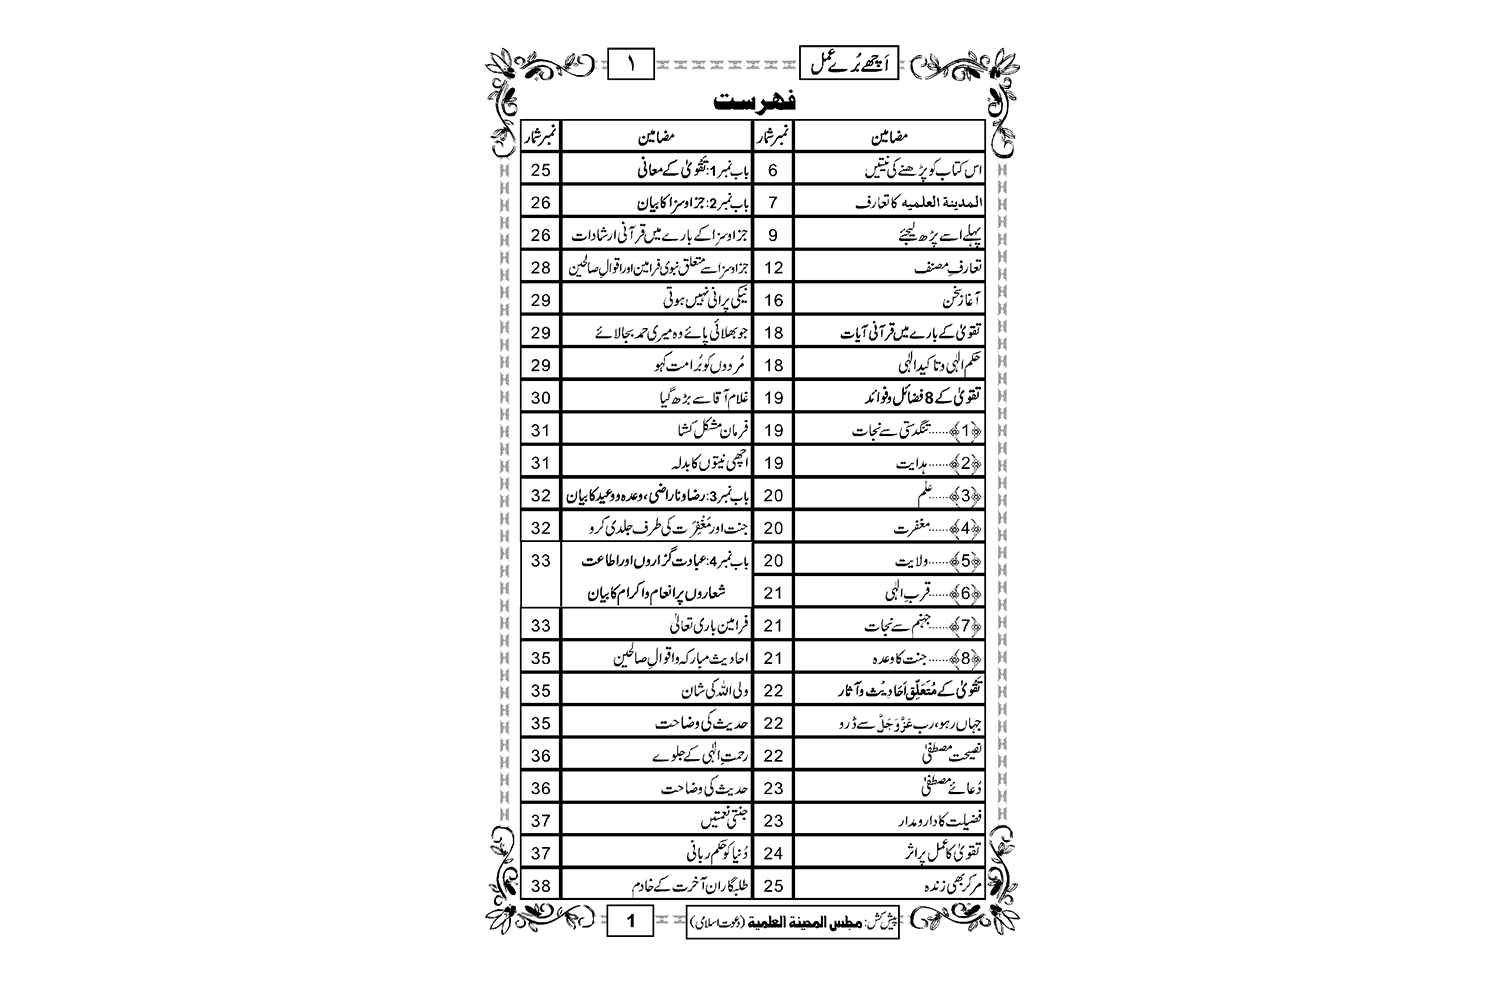 اَچھے بُرے عمل ۱
فہرست
مضامین نمبر شمار مضامین نمبر شمار
اس کتاب کو پڑھنے کی نیتیں 6 باب نمبر 1: تَقْویٰ کے معانی 25
المدینۃ العلمیہ کا تعارف 7 باب نمبر 2: جزا و سزا کا بیان 26
پہلے اسے پڑھ لیجئے 9 جزا و سزا کے بارے میں قرآنی ارشادات 26
تعارفِ مصنف 12 جزا و سزا سے متعلق نبوی فرامین اور اقوالِ صالحین 28
آغازِ سخن 16 نیکی پرانی نہیں ہوتی 29
تقویٰ کے بارے میں قرآنی آیات 18 جو بھلائی پائے وہ میری حمد بجا لائے 29
حکم الٰہی و تاکید الٰہی 18 مُردوں کو بُرا مت کہو 29
تقویٰ کے 8 فضائل و فوائد 19 غلام آقا سے بڑھ گیا 30
﴿1﴾......تنگدستی سے نجات 19 فرمان مشکل کشا 31
﴿2﴾......ہدایت 19 اچھی نیتوں کا بدلہ 31
﴿3﴾......علم 20 باب نمبر 3: رضا و ناراضی، وعدہ و وعید کا بیان 32
﴿4﴾......مغفرت 20 جنت اور مَغْفِرَت کی طرف جلدی کرو 32
﴿5﴾......ولایت 20 باب نمبر 4: عبادت گزاروں اور اطاعت 33
﴿6﴾......قربِ الٰہی 21 شعاروں پر انعام و اکرام کا بیان
﴿7﴾......جہنم سے نجات 21 فرامین باری تعالیٰ 33
﴿8﴾......جنت کا وعدہ 21 احادیث مبارکہ و اقوالِ صالحین 35
تَقْویٰ کے مُتَعَلِّق اَحَادِیْث و آثار 22 ولی اللہ کی شان 35
جہاں رہو، رب عَزَّوَجَلَّ سے ڈرو 22 حدیث کی وضاحت 35
نصیحت مصطفیٰ 22 رحمتِ الٰہی کے جلوے 36
دُعائے مصطفیٰ 23 حدیث کی وضاحت 36
فضیلت کا دار و مدار 23 جنتی نعمتیں 37
تقویٰ کا عمل پر اثر 24 دُنیا کو حکم ربانی 37
مر کر بھی زندہ 25 طلبگارانِ آخرت کے خادم 38
پیش کش: مجلس المدینۃ العلمیۃ (دعوت اسلامی) 1